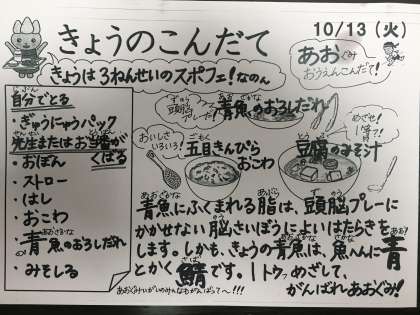 きょうのこんだて
10/13（火）
あおぐみ
おうえんこんだて！
きょうは3ねんせいのスポフェ！なのん
自分でとる
・ぎゅうにゅうパック
先生またはお当番が
くばる
・おぼん
・ストロー
・はし
・おこわ
・青魚のおろしだれ
・みそしる
頭脳
プレー
青魚のおろしだれ
おいしさ
いろいろ！
五目きんぴら
おこわ
めざせ！
1等賞！
豆腐のみそ汁
青魚にふくまれる脂は、頭脳プレーに
かかせない脳さいぼうによいはたらきを
します。しかも、きょうの青魚は、魚へんに青
とかく鯖です。1トウっめざして、
がんばれあおぐみ！